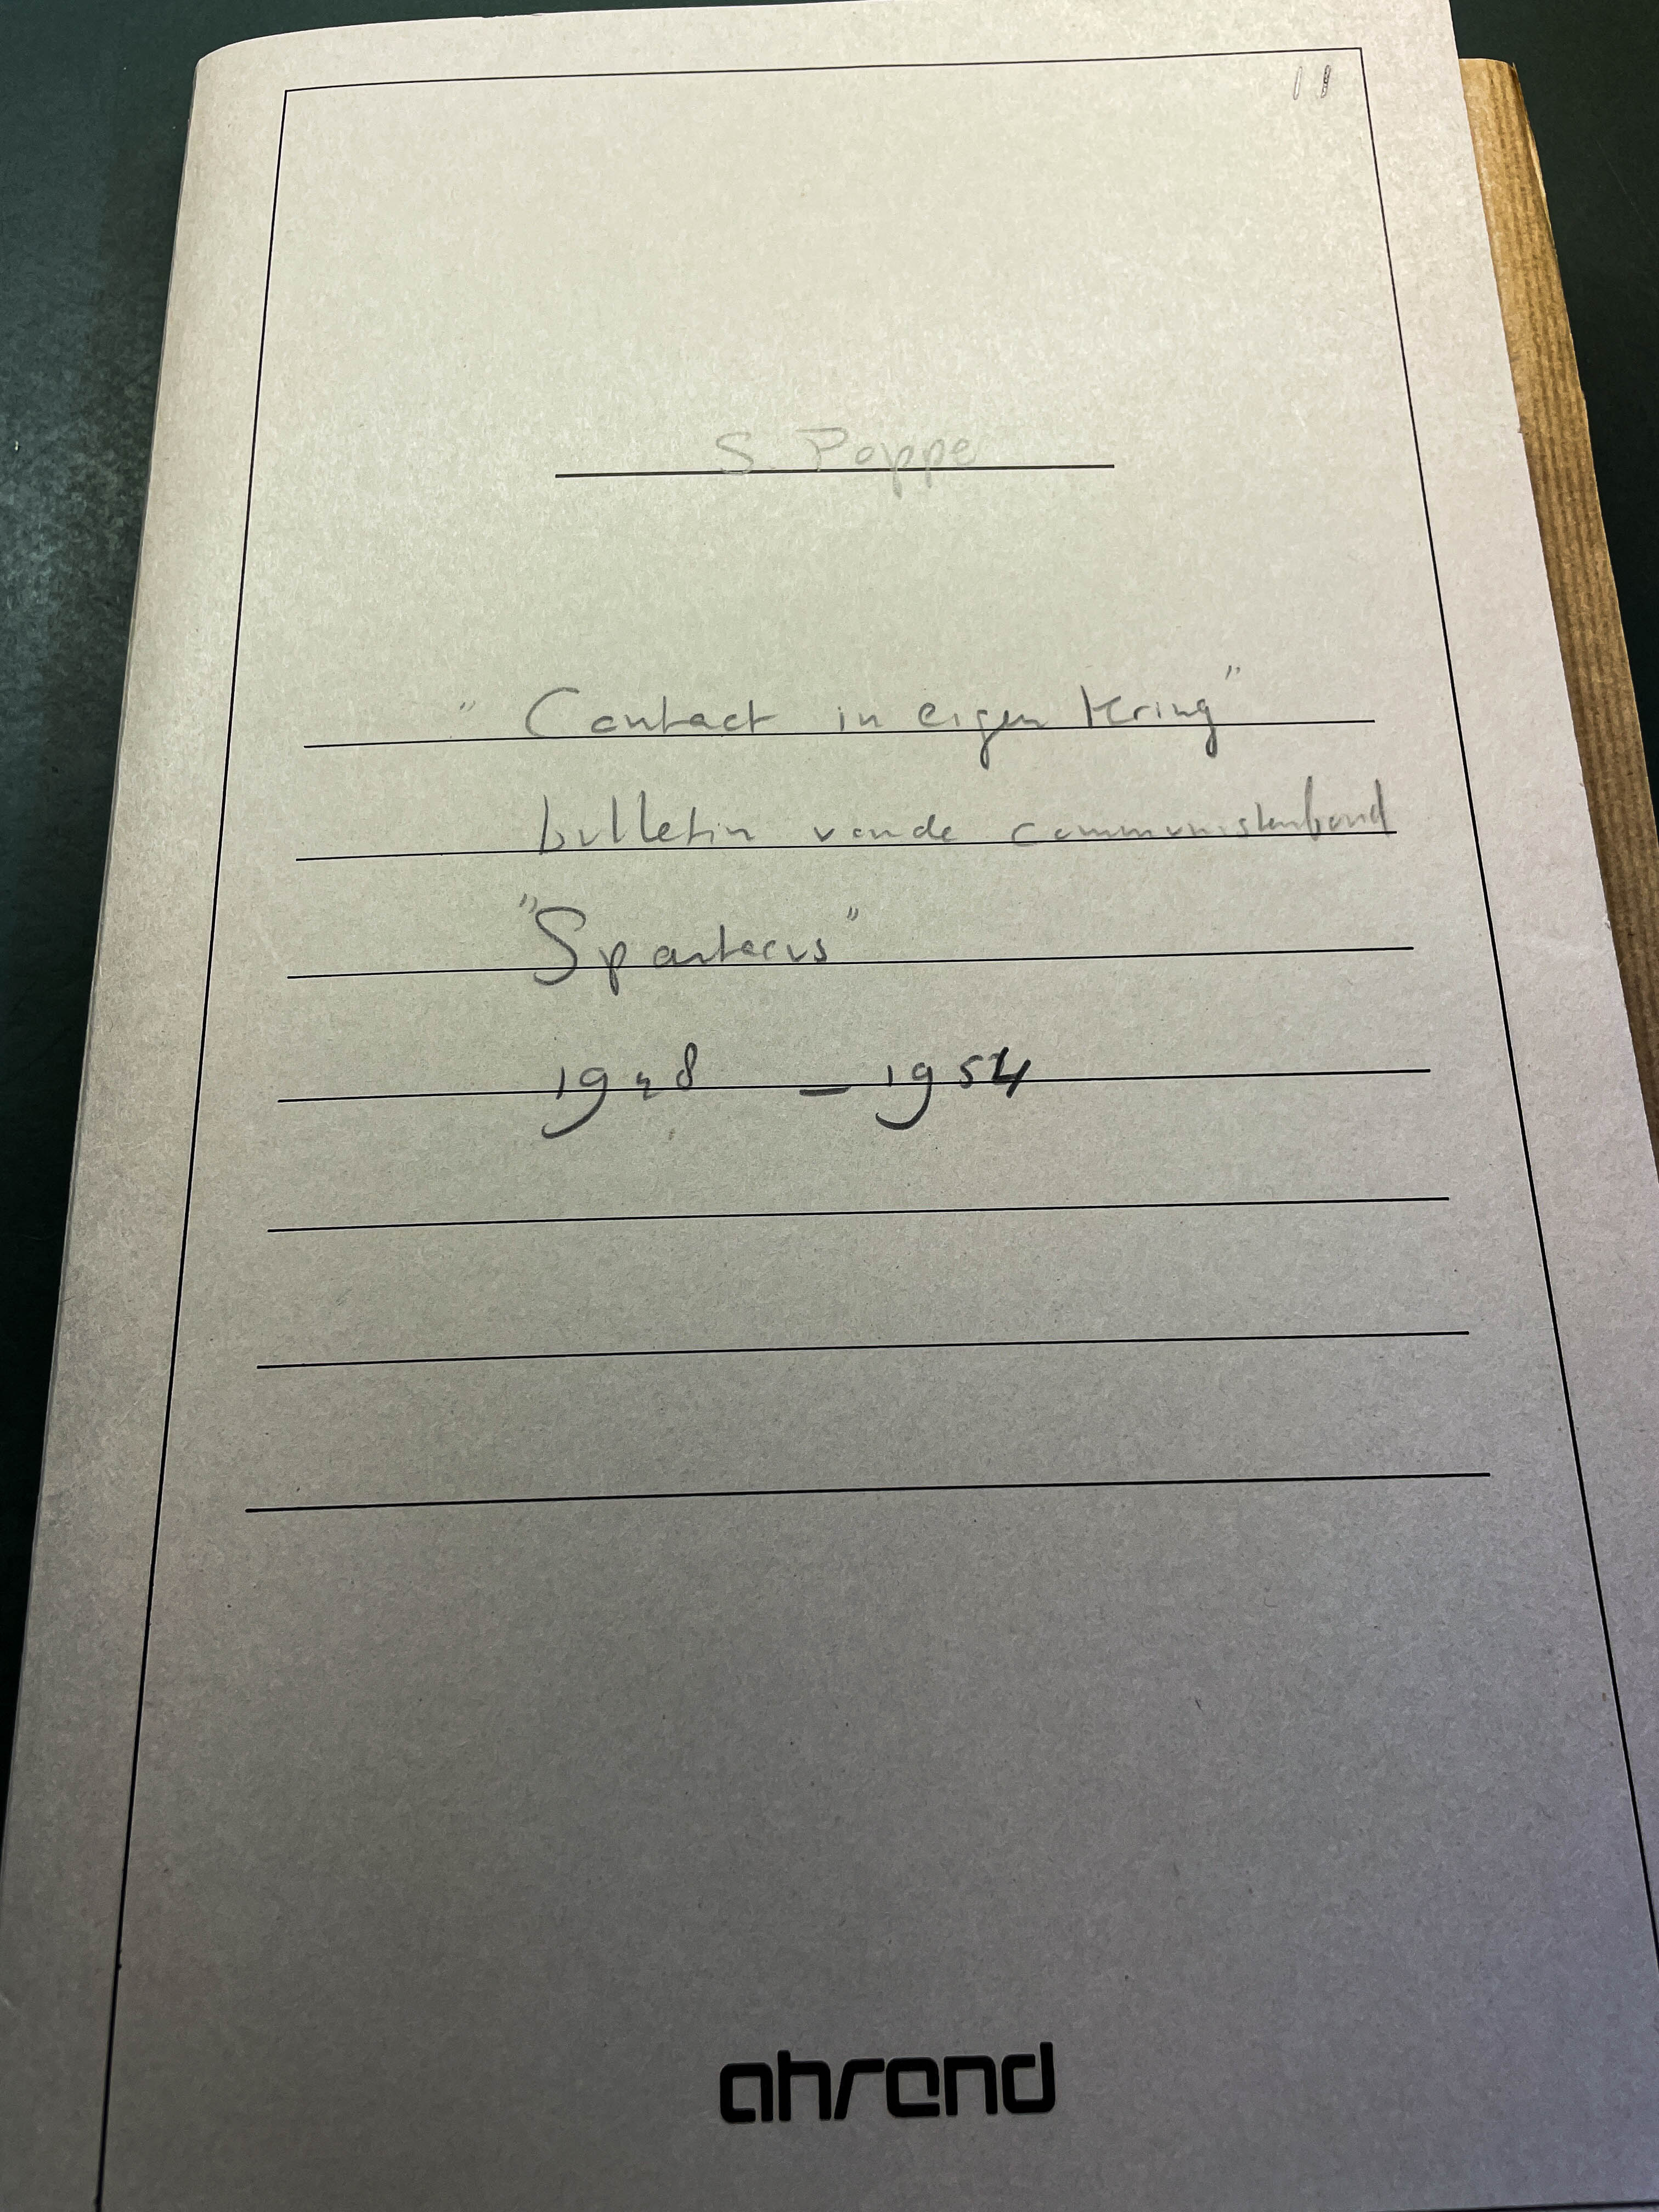 11
S. Poppe
"Contact in eigen Kring"
bulletin van de communistenbond
"Spartacus"
1948 – 1954
ahrend